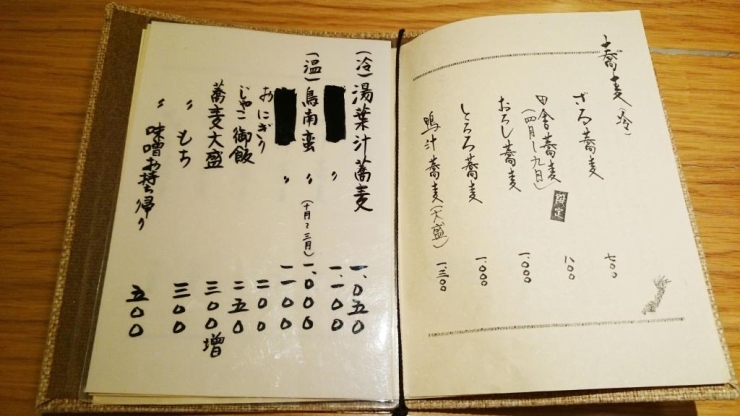 蕎麦(冷)
ざる蕎麦 七〇〇
田舎蕎麦 八〇〇
(四月〜九月) 限定
おろし蕎麦 一、〇〇〇
とろろ蕎麦 一、〇〇〇
鴨汁蕎麦(大盛) 一、三〇〇
(冷)湯葉汁蕎麦 一、〇五〇
〃 一、一〇〇
(温)鳥南蛮 〃 (十月〜三月) 一、〇〇〇
〃 一、一〇〇
おにぎり 二〇〇
じゃこ御飯 二五〇
蕎麦大盛 三〇〇増
〃 もち 三〇〇
〃 味噌お持ち帰り 五〇〇